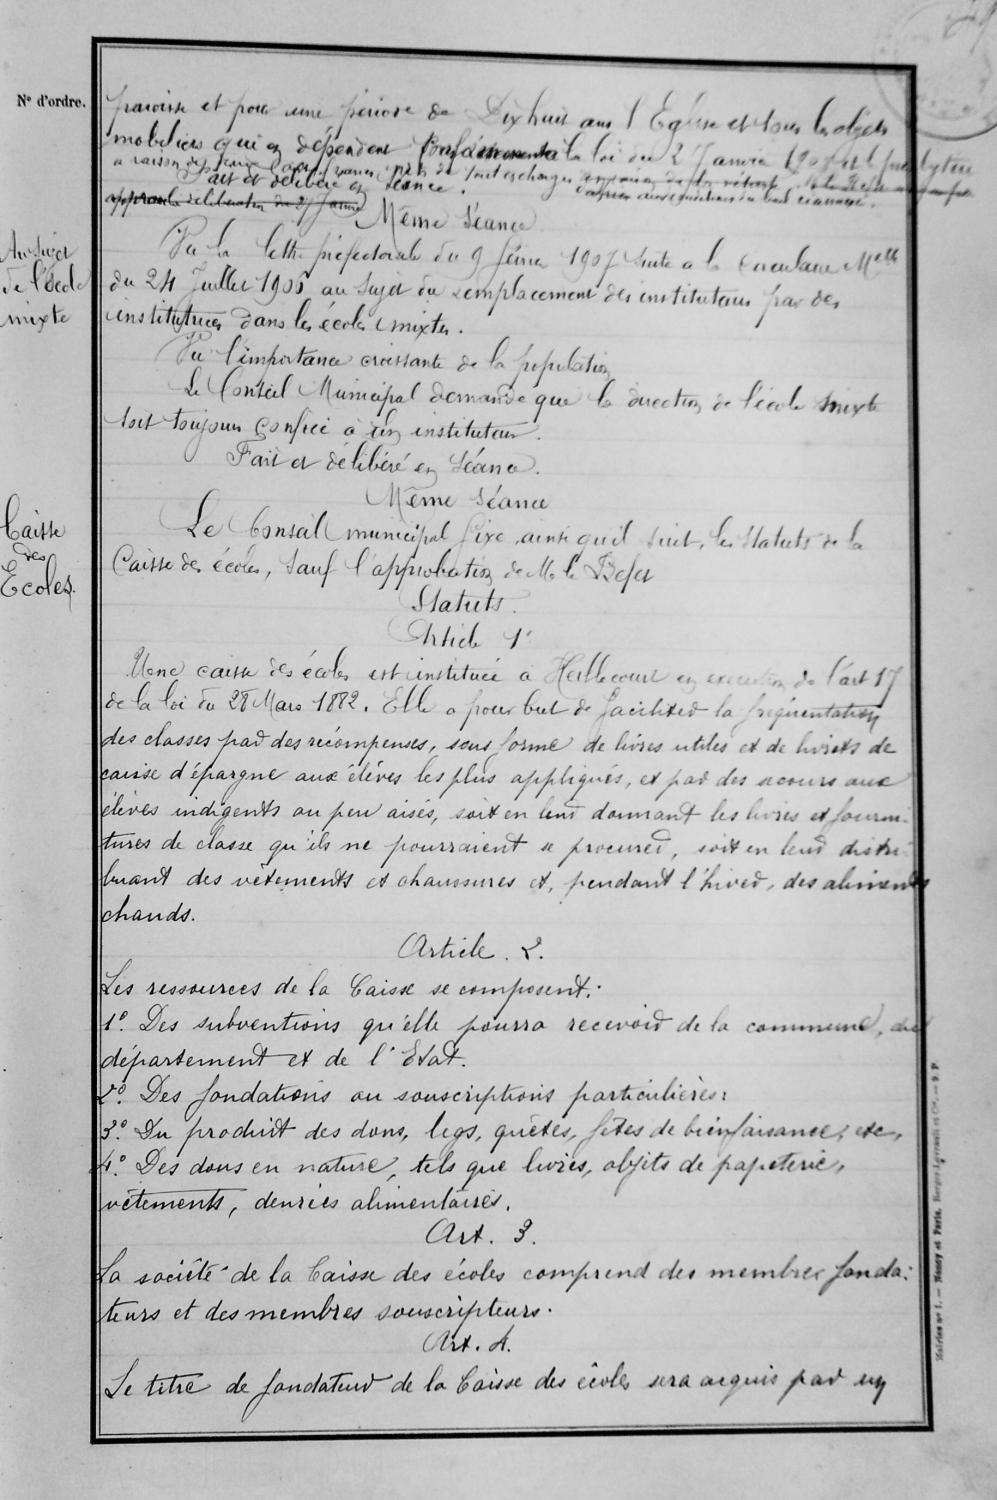 N° d'ordre.
paroisse et pour une période de Dix huit ans l'Eglise et tous les objets
mobiliers qui en dépendent conformément à la loi du 2 Janvier 1907 et le presbytère
à raison de francs près de tout échange
Fait et délibéré en séance.
délibération du 27 Janvier
Même Séance
Au sujet
de l'école
mixte
Vu la lettre préfectorale du 9 février 1907 suite à la circulaire Melle
du 24 Juillet 1906 au sujet du remplacement des instituteurs par des
institutrices dans les écoles mixtes.
Vu l'importance croissante de la population
Le Conseil Municipal demande que la direction de l'école mixte
soit toujours confiée à un instituteur.
Fait et délibéré en Séance.
Même Séance
Caisse
des
Ecoles.
Le Conseil municipal fixe ainsi qu'il suit, les Statuts de la
Caisse des écoles, sauf l'approbation de M. le Préfet
Statuts.
Article 1
Une caisse des écoles est instituée à Heillecourt en exécution de l'art 17
de la loi du 28 Mars 1882. Elle a pour but de faciliter la fréquentation
des classes par des récompenses, sous forme de livres utiles et de livrets de
caisse d'épargne aux élèves les plus appliqués, et par des secours aux
élèves indigents ou peu aisés, soit en leur donnant les livres et fourni-
tures de classe qu'ils ne pourraient se procurer, soit en leur distri-
buant des vêtements et chaussures et, pendant l'hiver, des aliments
chauds.
Article. 2.
Les ressources de la Caisse se composent:
1°. Des subventions qu'elle pourra recevoir de la commune, du
département et de l'Etat.
2°. Des fondations ou souscriptions particulières;
3°. Du produit des dons, legs, quêtes, fêtes de bienfaisance, etc,
4°. Des dons en nature, tels que livres, objets de papeterie,
vêtements, denrées alimentaires.
Art. 3.
La société de la Caisse des écoles comprend des membres fonda-
teurs et des membres souscripteurs.
Art. 4.
Le titre de fondateur de la Caisse des écoles sera acquis par un
Mairies n° 1. — Nancy et Paris. Berger-Levrault et Cie. —